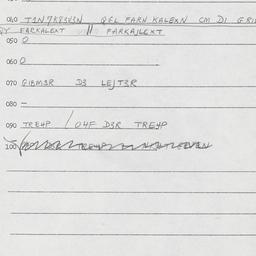 040 TIN7KB3V3N QEL FARN KALEXN CM DI GRI
QY FARKALEXT // FARKAJLEXT
050 0
060 0
070 GIBM3R D3 LEJT3R
080 -
090 TREYP / 04F D3R TREYP
100 TREYP